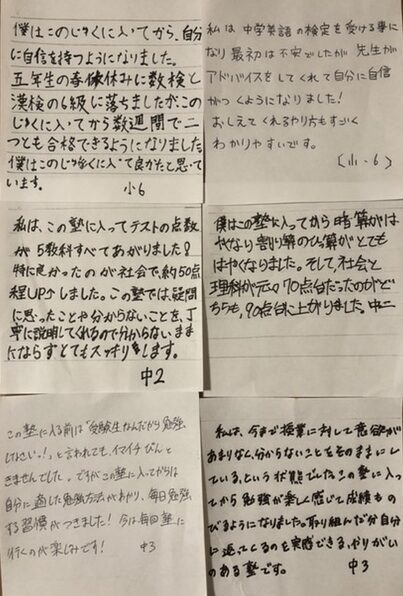 僕はこのじゅくに入ってから、自分
に自信を持つようになりました。
五年生の春休みに数検と
漢検の6級に落ちましたがこの
じゅくに入ってから数週間で二
つとも合格できるようになりました
僕はこのじゅくに入って良かったと思って
います。
小6
私は中学英語の検定を受ける事に
なり最初は不安でしたが先生が
アドバイスをしてくれて自分に自信
がつくようになりました!
おしえてくれるやり方もすごく
わかりやすいです。
(小・6)
私は、この塾に入ってテストの点数
が5教科すべてあがりました!
特に良かったのが社会で、約50点
程UP↑しました。この塾では、疑問
に思ったことや分からないことを、丁
寧に説明してくれるので分からないまま
にならずとてもスッキリします。
中2
僕はこの塾に入ってから暗算がは
やくなり割り算のひっ算がとても
はやくなりました。そして、社会と
理科が元々70点台だったのがど
ちらも、90点台に上がりました。中二
この塾に入る前は「受験生なんだから勉強
しなさい!!」と言われても、イマイチぴんと
きませんでした。ですがこの塾に入ってからは
自分に適した勉強方法がわかり、毎日勉強
する習慣がつきました!今は毎回塾に
行くのが楽しみです!
中3
私は、今まで授業に対して意欲が
あまりなく、分からないことをそのままにし
ている、という状態でした。この塾に入っ
てから勉強が楽しく感じて成績もの
びるようになりました。取り組んだ分自分
に返ってくるのを実感できる、やりがい
のある塾です。
中3